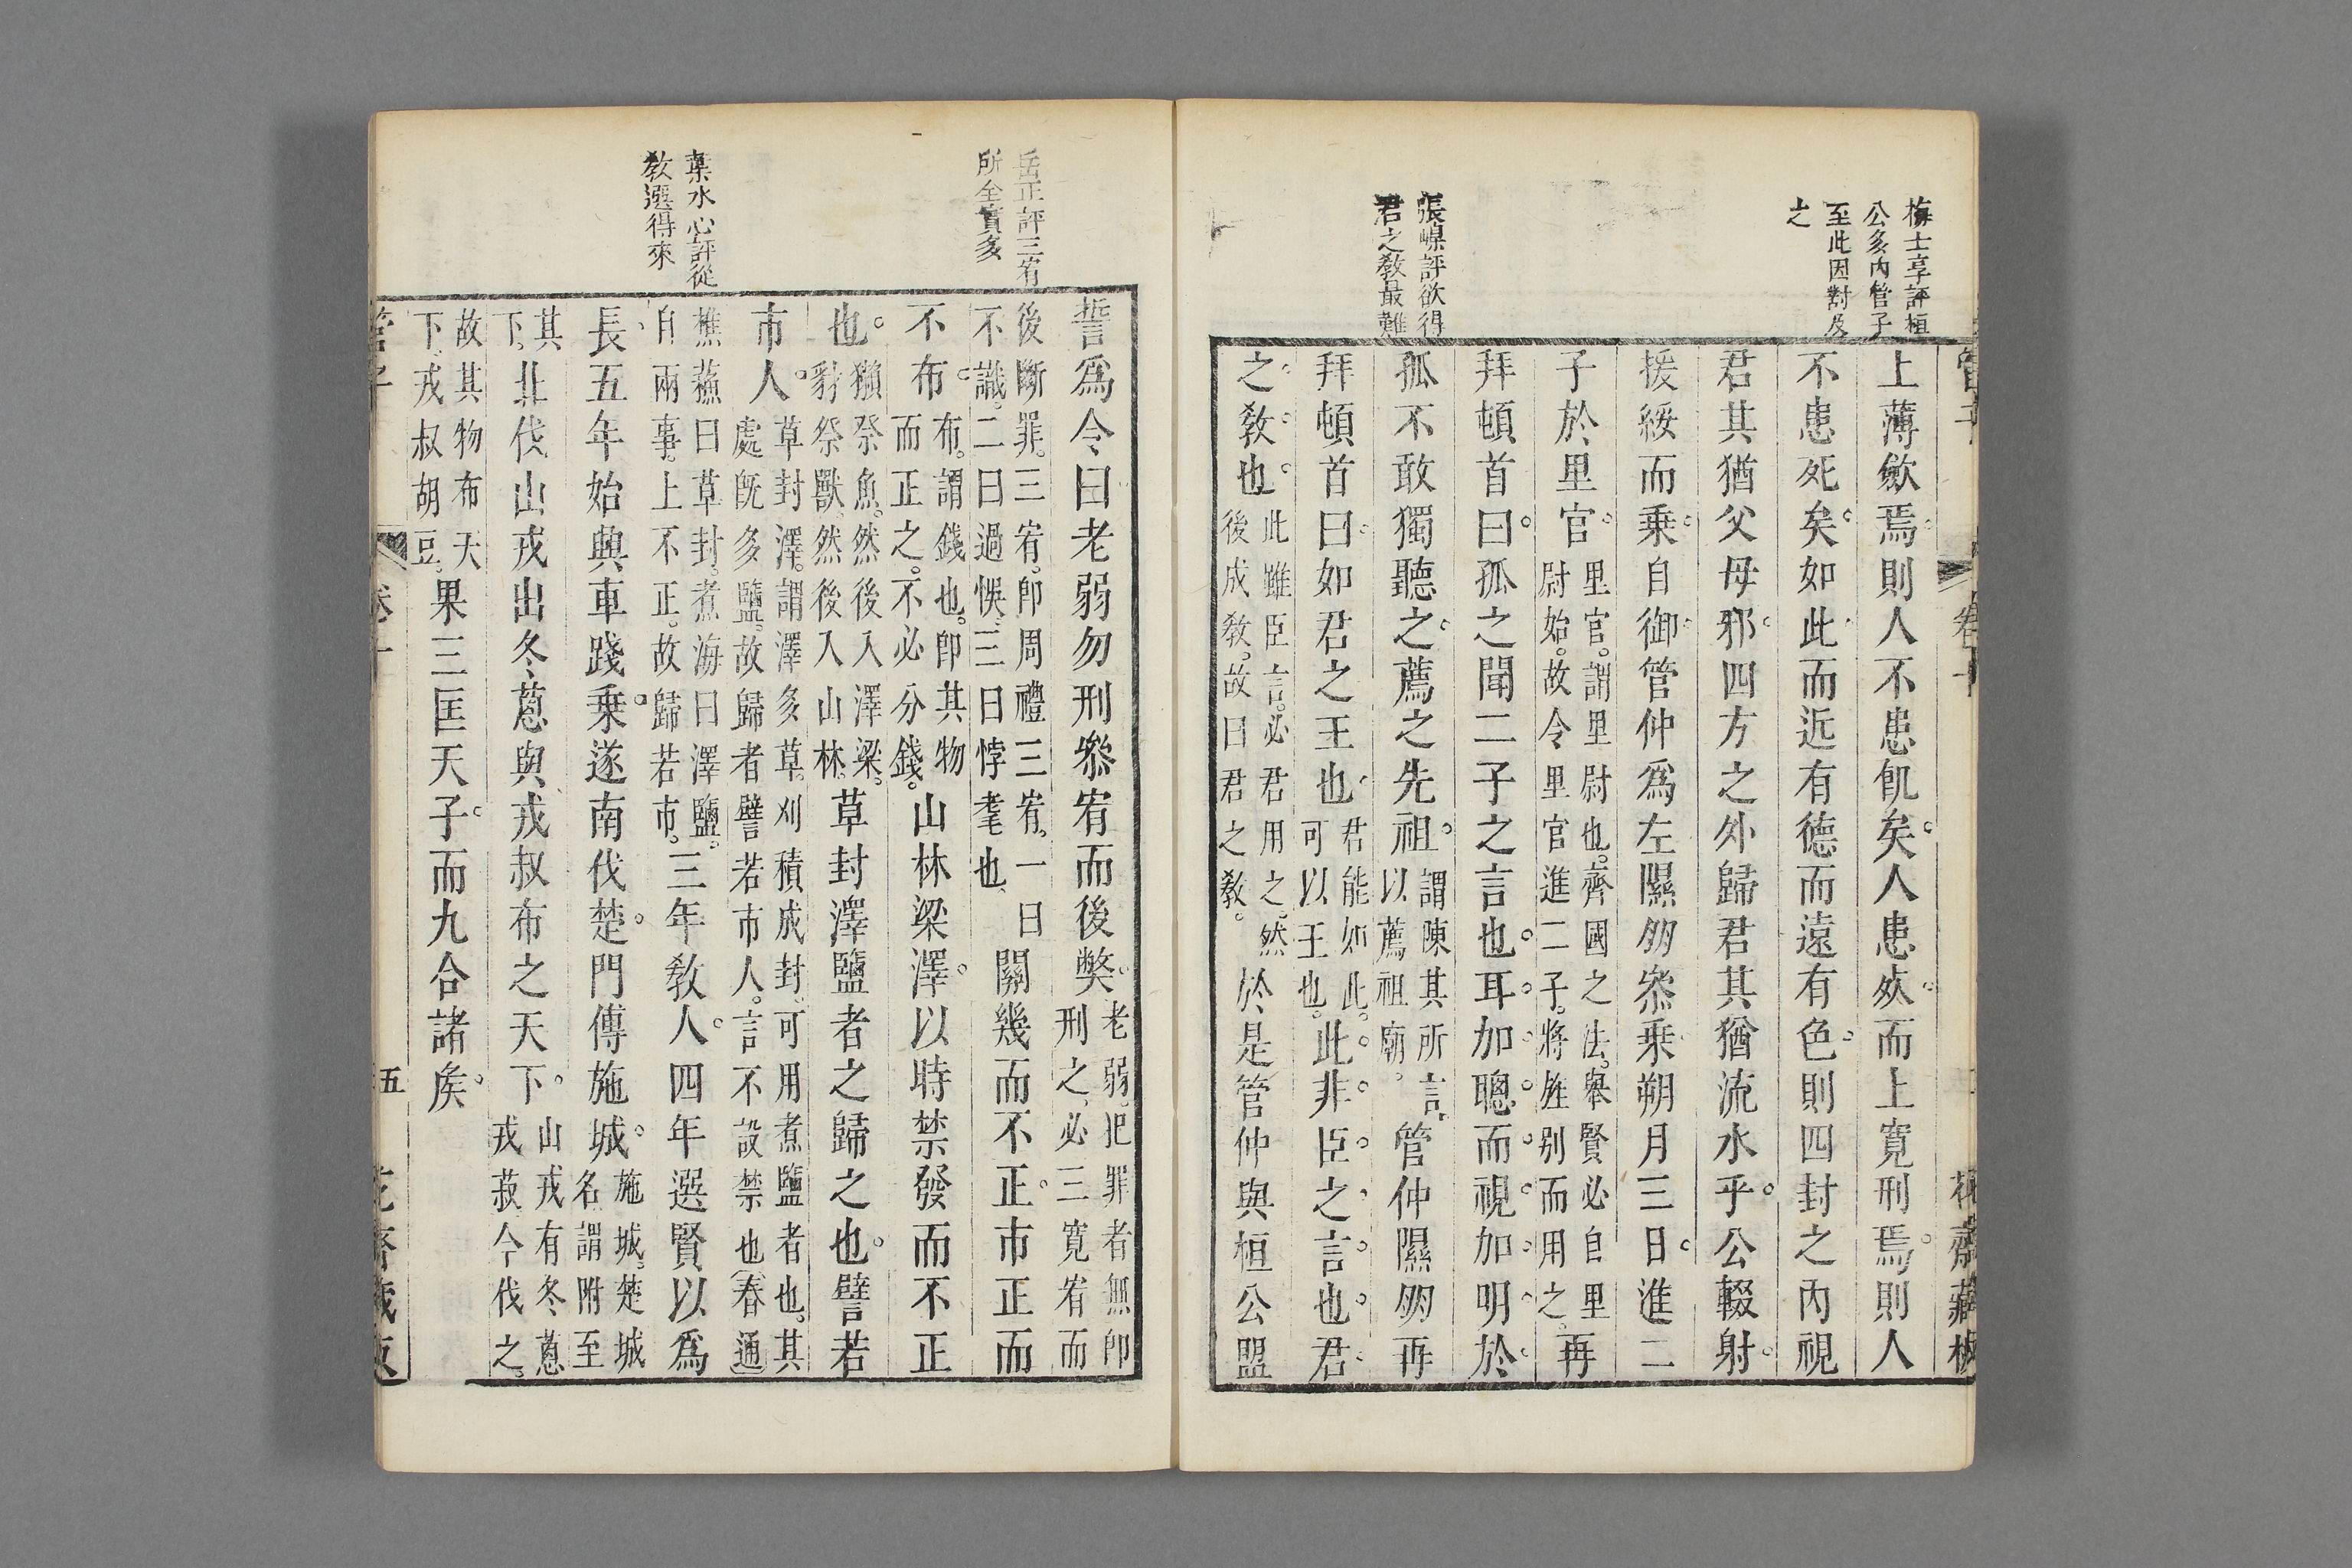 梅士享評桓
公多內管子
至此因對及
之
張嵲評欲得
君之敎最難
上薄歛焉則人不患飢矣人患死而上寬刑焉則人
不患死矣如此而近有德而遠有色則四封之內視
君其猶父母邪四方之外歸君其猶流水乎公輟射
援綏而乗自御管仲爲左隰朋參乗朔月三日進二
子於里官里官謂里尉也齊國之法舉賢必自里尉始故令里官進二子將旌别而用之再
拜頓首曰孤之聞二子之言也耳加聰而視加明於
孤不敢獨聽之薦之先祖謂陳其所言以薦祖廟管仲隰朋再
拜頓首曰如君之王也君能如此可以王也此非臣之言也君
之敎也此雖臣言必君用之然後成敎故曰君之敎於是管仲與桓公盟
誓爲令曰老弱勿刑參宥而後獘老弱犯罪者無卽刑之必三寬宥而
後斷罪三宥卽周禮三宥一曰不識二曰過悞三曰悖耄也關幾而不正市正而
不布布謂錢也卽其物而正之不必分錢山林梁澤以時禁發而不正
也獺祭魚然後入澤梁豺祭獸然後入山林草封澤鹽者之歸之也譬若
市人草封澤謂澤多草刈積成封可用煮鹽者也其處旣多鹽故歸者譬若市人言不設禁也春通
樵蘓曰草封煮海曰澤鹽自兩事上不正故歸若市三年敎人四年選賢以爲
長五年始興車踐乗遂南伐楚門傅施城施城楚城名謂附至
其下北伐山戎出冬䓤與戎叔布之天下山戎有冬䓤戎菽今伐之
故其物布天下戎叔胡豆果三匡天子而九合諸矦
岳正評三宥
所全實多
葉水心評從
敎選得來
管子
卷十
五
花齋藏板